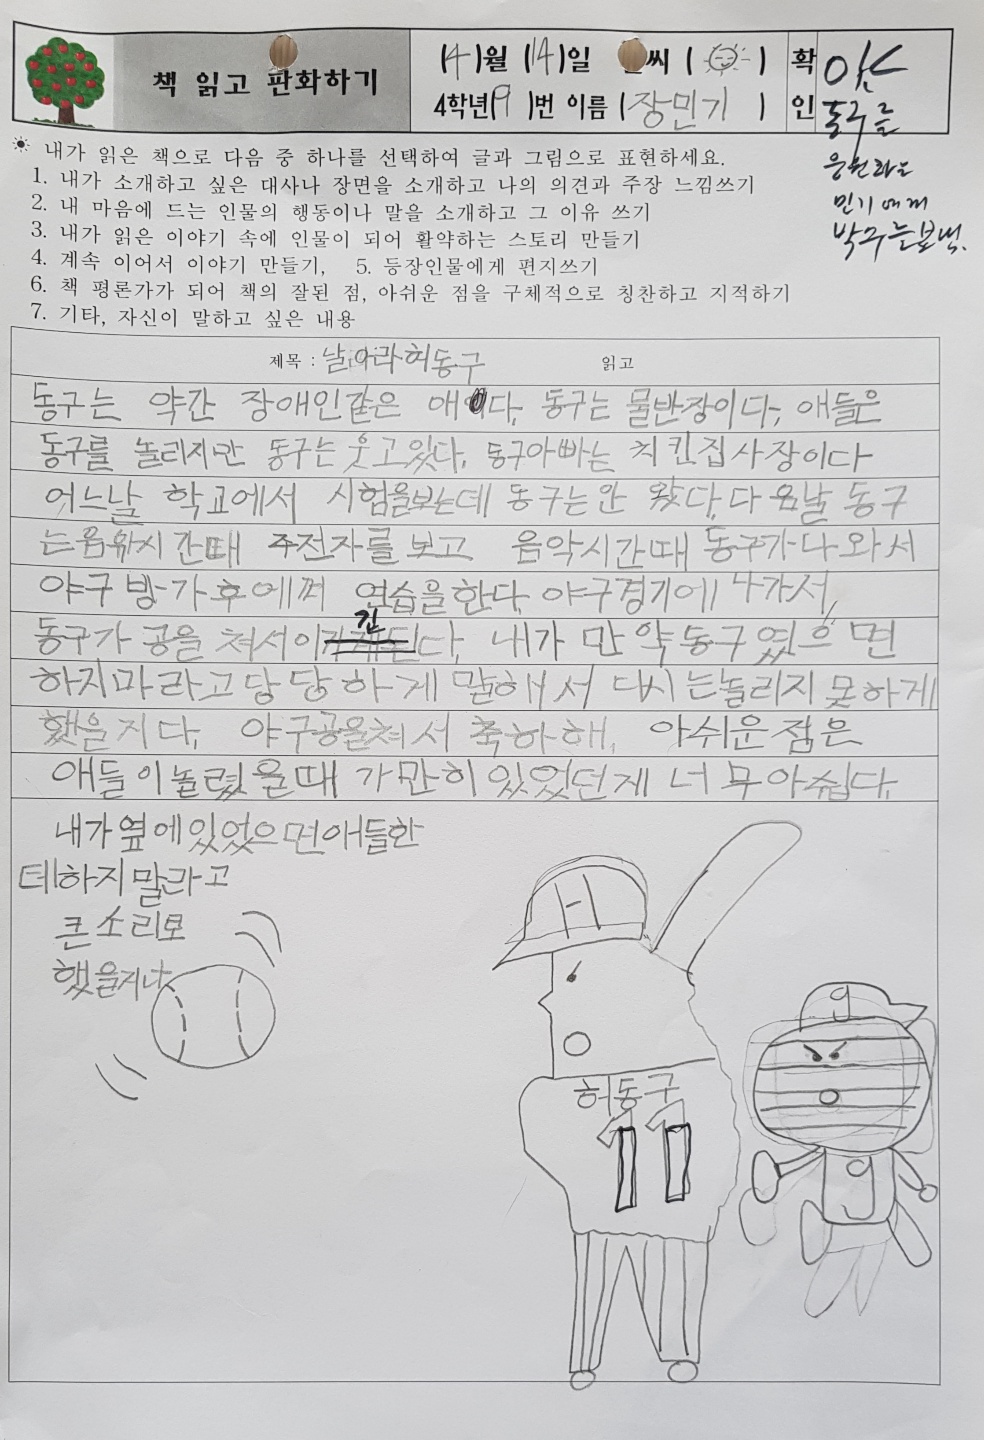 책 읽고 판화하기
(4)월 (14)일 씨 ( )
4학년(9)번 이름 (장민기)
확인
동구를
응원하는
민기에게
박수를 보냄.
내가 읽은 책으로 다음 중 하나를 선택하여 글과 그림으로 표현하세요.
1. 내가 소개하고 싶은 대사나 장면을 소개하고 나의 의견과 주장 느낌쓰기
2. 내 마음에 드는 인물의 행동이나 말을 소개하고 그 이유 쓰기
3. 내가 읽은 이야기 속에 인물이 되어 활약하는 스토리 만들기
4. 계속 이어서 이야기 만들기, 5. 등장인물에게 편지쓰기
6. 책 평론가가 되어 책의 잘된 점, 아쉬운 점을 구체적으로 칭찬하고 지적하기
7. 기타, 자신이 말하고 싶은 내용
제목 : 날아라 허동구 읽고
동구는 약간 장애인같은 애다, 동구는 물반장이다, 애들은
동구를 놀리지만 동구는 웃고있다, 동구아빠는 치킨집사장이다
어느날 학교에서 시험을보는데 동구는안 왔다, 다음날 동구
는음악시간때 주전자를 보고 음악시간때 동구가나와서
야구 방가후에껴 연습을한다, 야구경기에 나가서,
동구가 공을 쳐서이긴다, 내가 만약동구였으면
하지마라고당당하게 말해서 다시는놀리지못하게
했을지다, 야구공을쳐서 축하해, 아쉬운점은
애들이놀렸을때 가만히있었던게 너무아쉽다,
내가옆에있었으면애들한
테하지말라고
큰소리로
했을지다
H
허동구
11
9
9